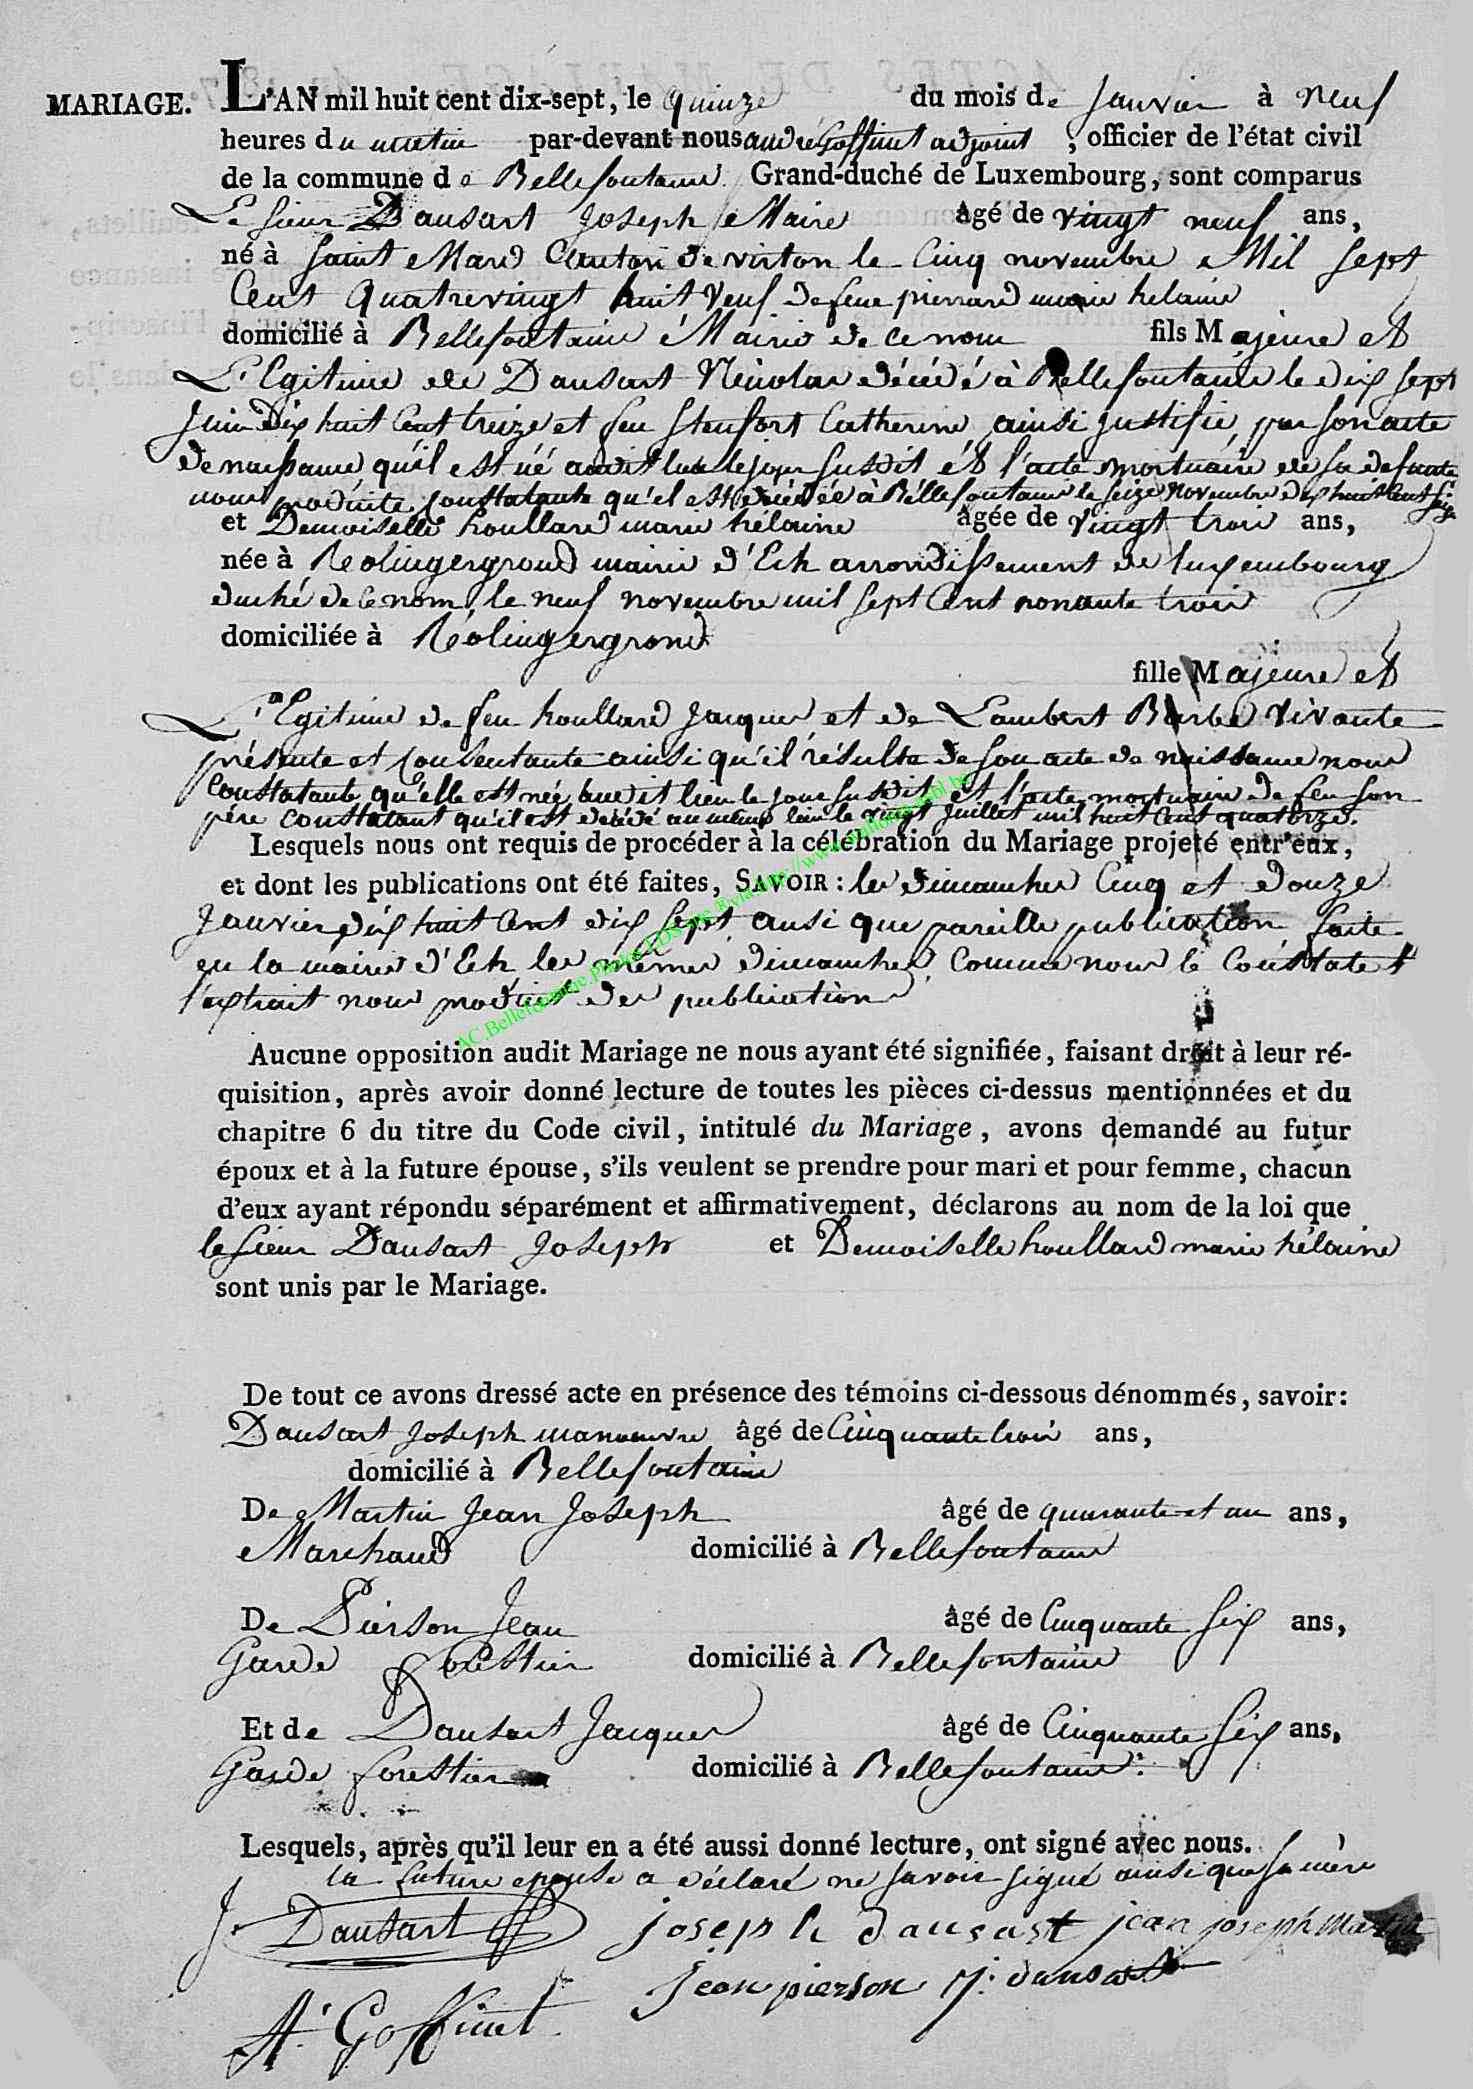 MARIAGE. L'AN mil huit cent dix-sept, le quinze du mois de Janvier à neuf
heures du matin par-devant nous andré Goffinet adjoint, officier de l'état civil
de la commune de Bellefontaine Grand-duché de Luxembourg, sont comparus
Le sieur Dausart Joseph Maire âgé de vingt neuf ans,
né à Saint Mard Canton de virton le Cinq novembre Mil Sept
Cent Quatrevingt huit veuf de feue pierrard marie helaine
domicilié à Bellefontaine Mairie de ce nom fils Majeure et
L'Egitime de Dausart Nicolas décédé à Bellefontaine le dix Sept
Juin Dix huit Cent treize et feu Catherine ainsi justifié par son acte
de naissance qu'il est né audit lieu le jour susdit et l'acte mortuaire de sa defunte
nous produite Constatante qu'el est décédée à Bellefontaine le seize Novembre dix huit Cent
et Demoiselle houllard marie hélaine âgée de vingt trois ans,
née à Rolingergrond mairie d'Ech arrondissement de luxembourg
duché de ce nom, le neuf novembre mil sept Cent nonante trois
domiciliée à Rolingergrond
fille Majeure et
L'Egitime de feu houllard Jacques et de Lambert Barbe vivante
présente et Consentante ainsi qu'il résulte de son acte de naissance nous
Constatante qu'elle est née audit lieu le jour susdit et l'acte mortuaire de feu son
père Constatant qu'il est décédé au même lieu le vingt Juillet mil huit Cent quatorze.
Lesquels nous ont requis de procéder à la célébration du Mariage projeté entr'eux,
et dont les publications ont été faites, SAVOIR : les dimanches Cinq et douze
Janvier dix huit Cent dix Sept ainsi que pareille publication faite
en la mairie d'Ech les mêmes dimanches Comme nous le Constate
l'extrait nous produit des publications
Aucune opposition audit Mariage ne nous ayant été signifiée, faisant droit à leur ré-
quisition, après avoir donné lecture de toutes les pièces ci-dessus mentionnées et du
chapitre 6 du titre du Code civil, intitulé du Mariage, avons demandé au futur
époux et à la future épouse, s'ils veulent se prendre pour mari et pour femme, chacun
d'eux ayant répondu séparément et affirmativement, déclarons au nom de la loi que
le sieur Dausart Joseph et Demoiselle houllard marie hélaine
sont unis par le Mariage.
De tout ce avons dressé acte en présence des témoins ci-dessous dénommés, savoir :
Dausart Joseph manoeuvre âgé de Cinquante trois ans,
domicilié à Bellefontaine
De Martin Jean Joseph âgé de quarante et un ans,
Marchand domicilié à Bellefontaine
De Pierson Jean âgé de Cinquante Six ans,
Garde forestier domicilié à Bellefontaine
Et de Dausart Jacques âgé de Cinquante Six ans,
Garde forestier domicilié à Bellefontaine.
Lesquels, après qu'il leur en a été aussi donné lecture, ont signé avec nous.
la future epouse a déclaré ne savoir signé ainsi que sa mère
J. Dausart joseph dausart jean joseph Martin
Jean pierson J. dausart
A. Goffinet